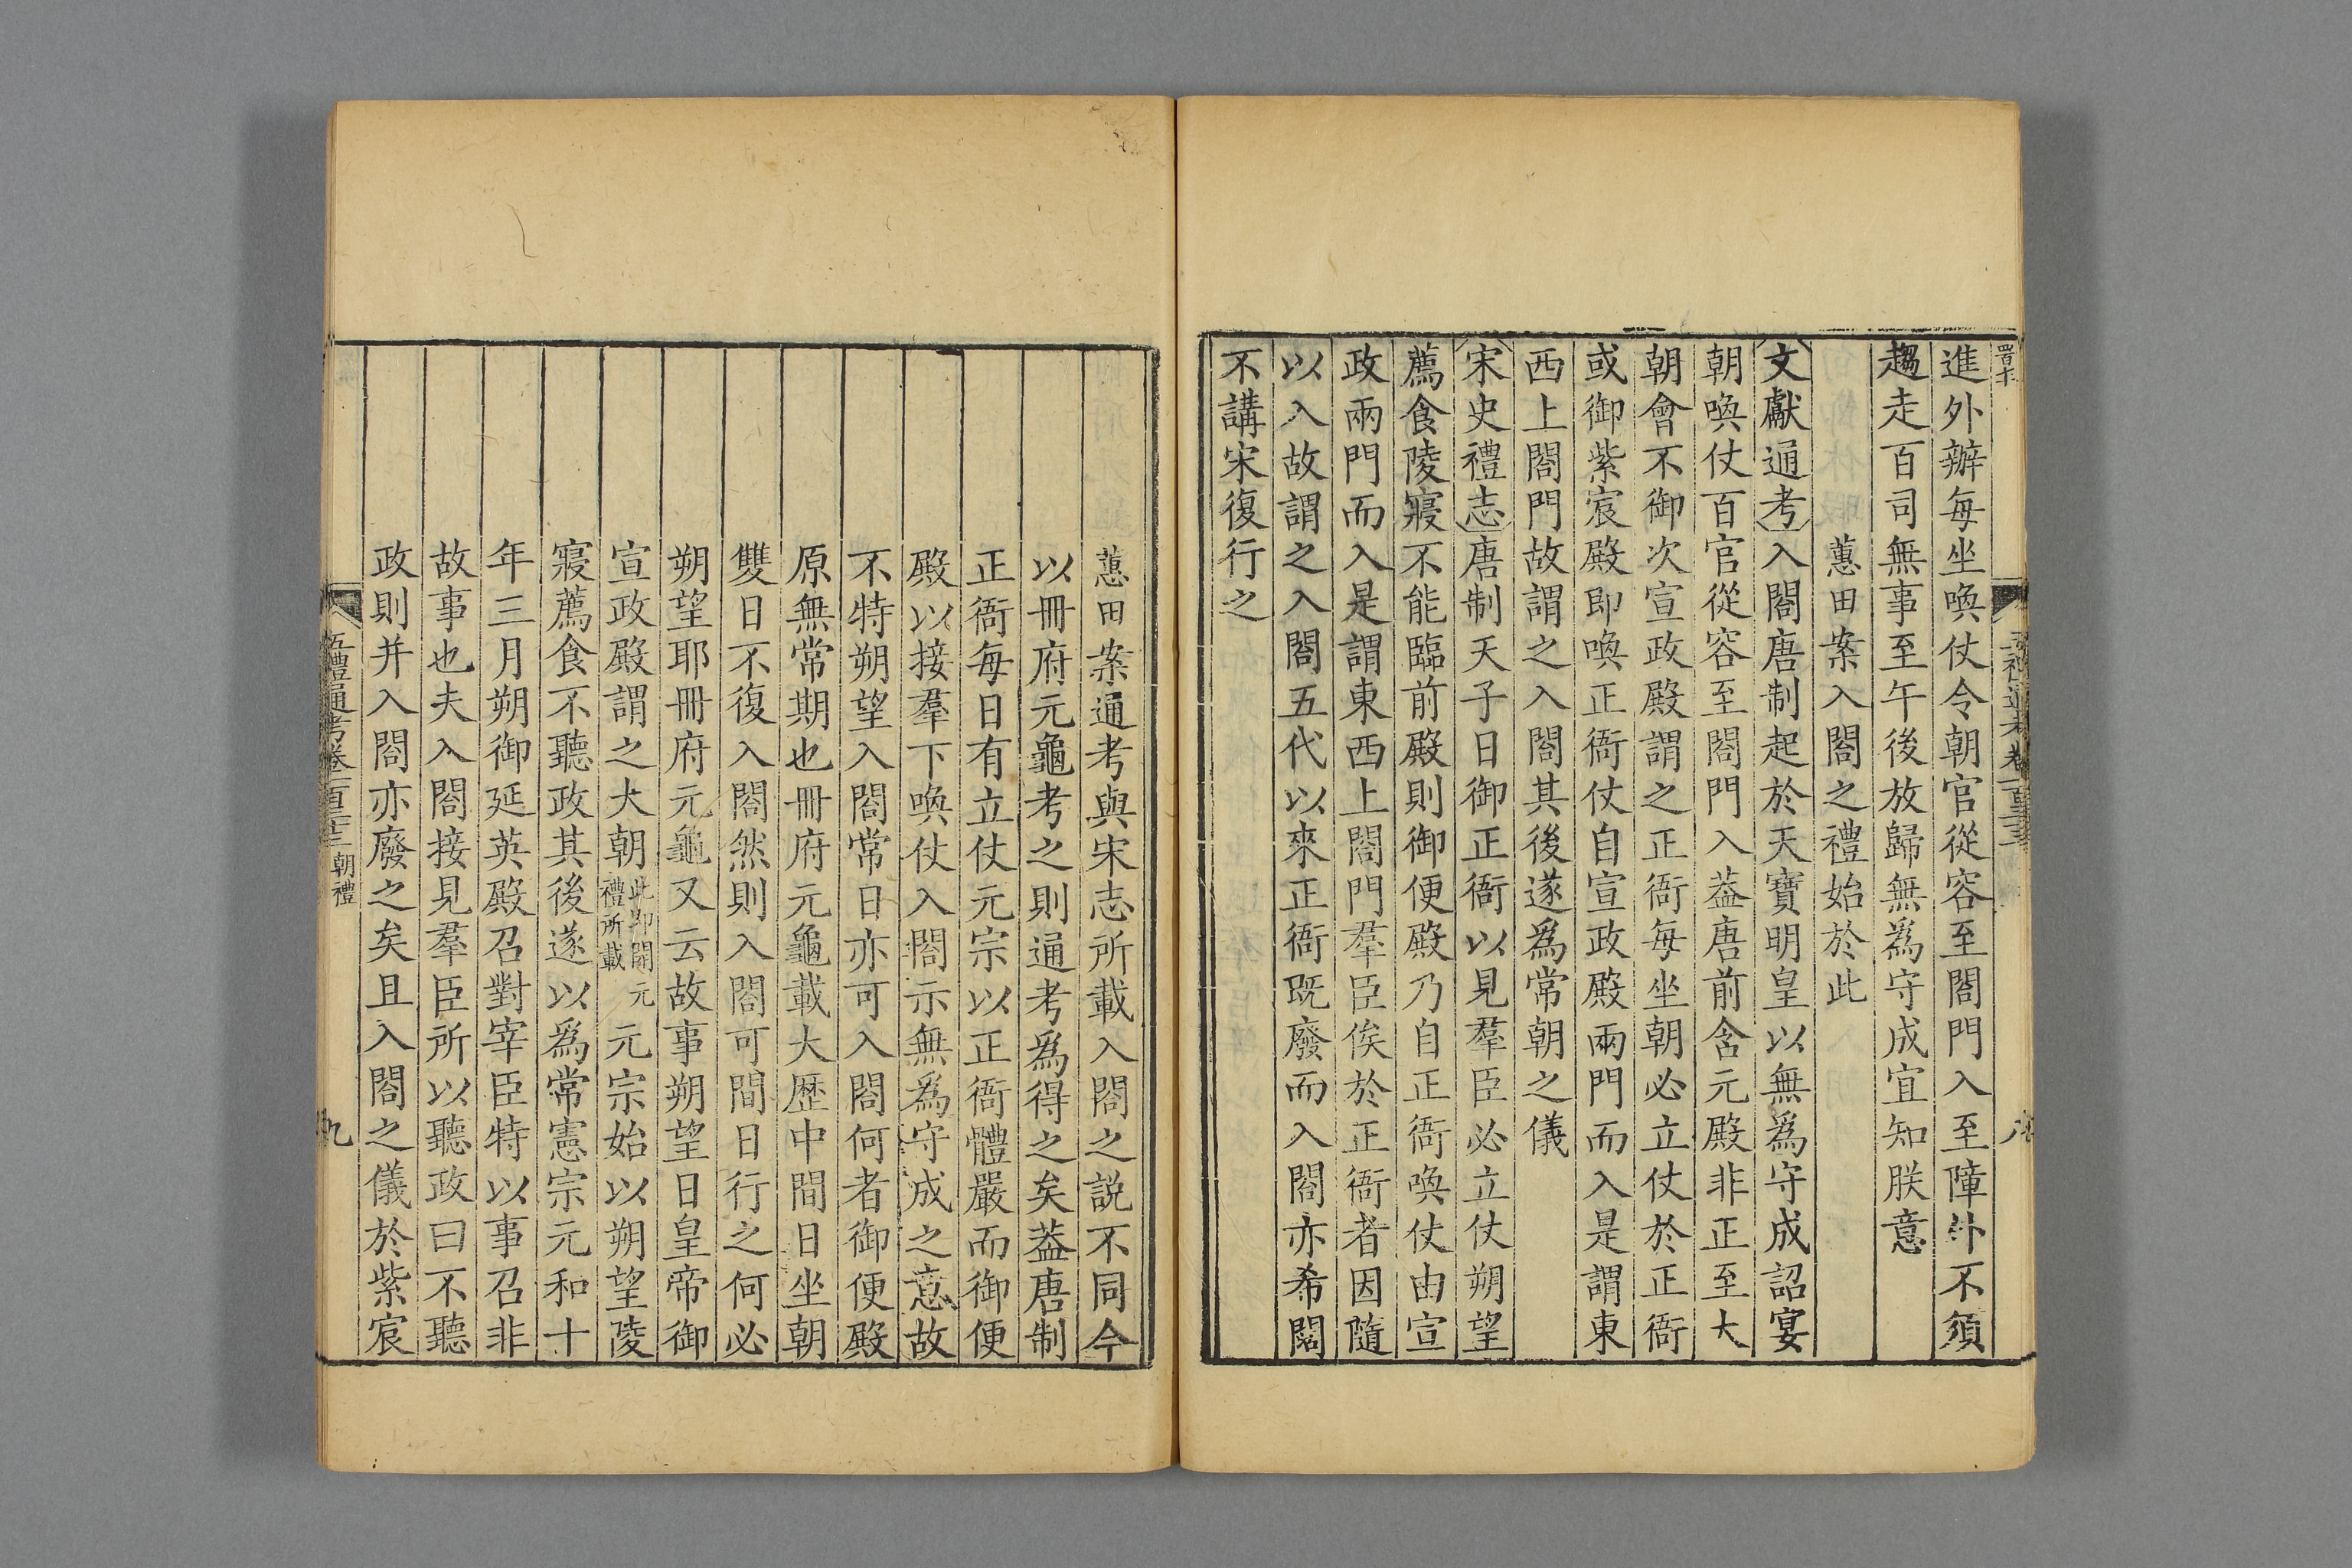 進外辦每坐喚仗令朝官從容至閤門入至障外不須
趨走百司無事至午後放歸無為守成宜知朕意
蕙田案入閤之禮始於此
文獻通考入閤唐制起於天寶明皇以無爲守成詔宴
朝喚仗百官從容至閤門入葢唐前含元殿非正至大
朝會不御次宣政殿謂之正衙每坐朝必立仗於正衙
或御紫宸殿即喚正衙仗自宣政殿兩門而入是謂東
西上閤門故謂之入閤其後遂爲常朝之儀
宋史禮志唐制天子日御正衙以見羣臣必立仗朔望
薦食陵寢不能臨前殿則御便殿乃自正衙喚仗由宣
政兩門而入是謂東西上閤門羣臣俟於正衙者因隨
以入故謂之入閤五代以來正衙既廢而入閤亦希闊
不講宋復行之
八
蕙田案通考與宋志所載入閤之説不同今
以冊府元龜考之則通考爲得之矣葢唐制
正衙每日有立仗元宗以正衙體嚴而御便
殿以接羣下喚仗入閤示無爲守成之意故
不特朔望入閤常日亦可入閤何者御便殿
原無常期也冊府元龜載大歷中間日坐朝
雙日不復入閤然則入閤可間日行之何必
朔望耶冊府元龜又云故事朔望日皇帝御
宣政殿謂之大朝此即開元禮所載元宗始以朔望陵
寢薦食不聽政其後遂以爲常憲宗元和十
年三月朔御延英殿召對宰臣特以事召非
故事也夫入閤接見羣臣所以聽政曰不聽
政則并入閤亦廢之矣且入閤之儀於紫宸
五禮通考卷一百三十二 朝禮 九